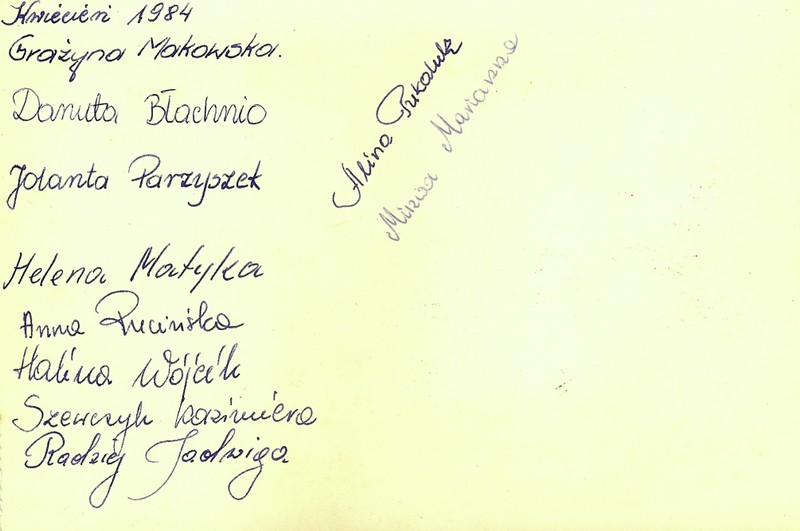 Kwiecień 1984
Grażyna Makowska.
Danuta Błachnio
Jolanta Parzyszek
Helena Matyka
Anna Rucińska
Halina Wójcik
Szewczyk Kazimiera
Radziej Jadwiga
Alina
Marianna